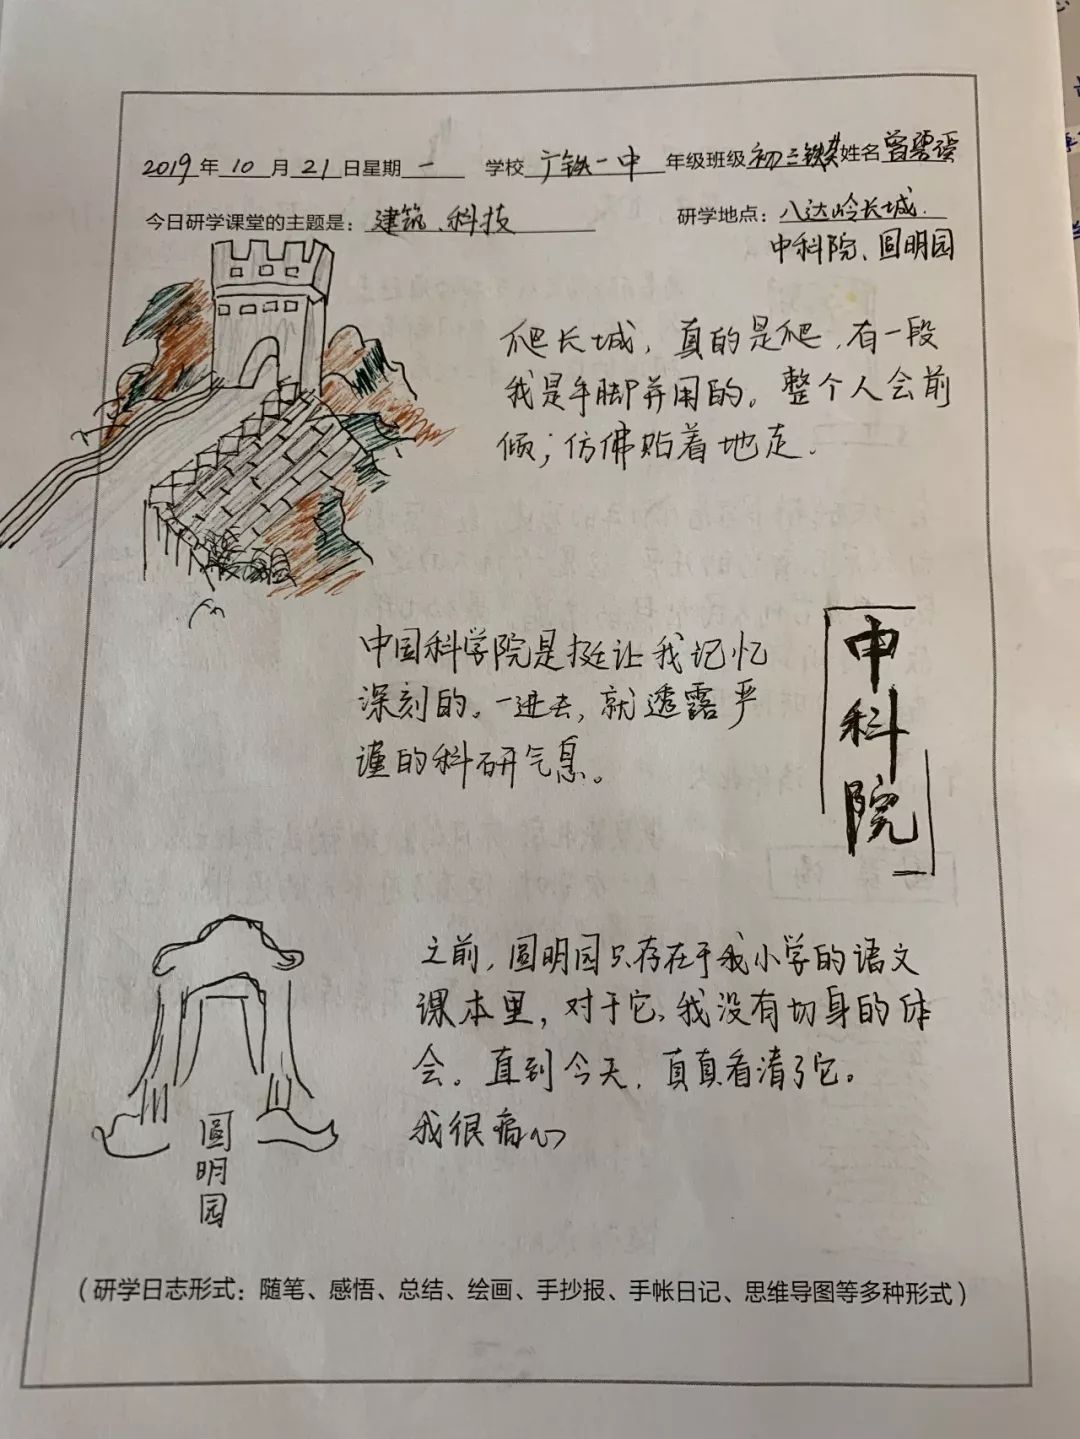 2019年10月21日星期一 学校广铁一中 年级班级初三铁英姓名曾
今日研学课堂的主题是：建筑、科技 研学地点：八达岭长城.
中科院、圆明园
爬长城，真的是爬，有一段
我是手脚并用的。整个人会前
倾；仿佛贴着地走.
中国科学院是挺让我记忆
深刻的。一进去，就透露严
谨的科研气息。
中
科
院
之前，圆明园只存在于我小学的语文
课本里，对于它，我没有切身的体
会。直到今天，真真看清了它。
我很痛心
圆
明
园
（研学日志形式：随笔、感悟、总结、绘画、手抄报、手帐日记、思维导图等多种形式）